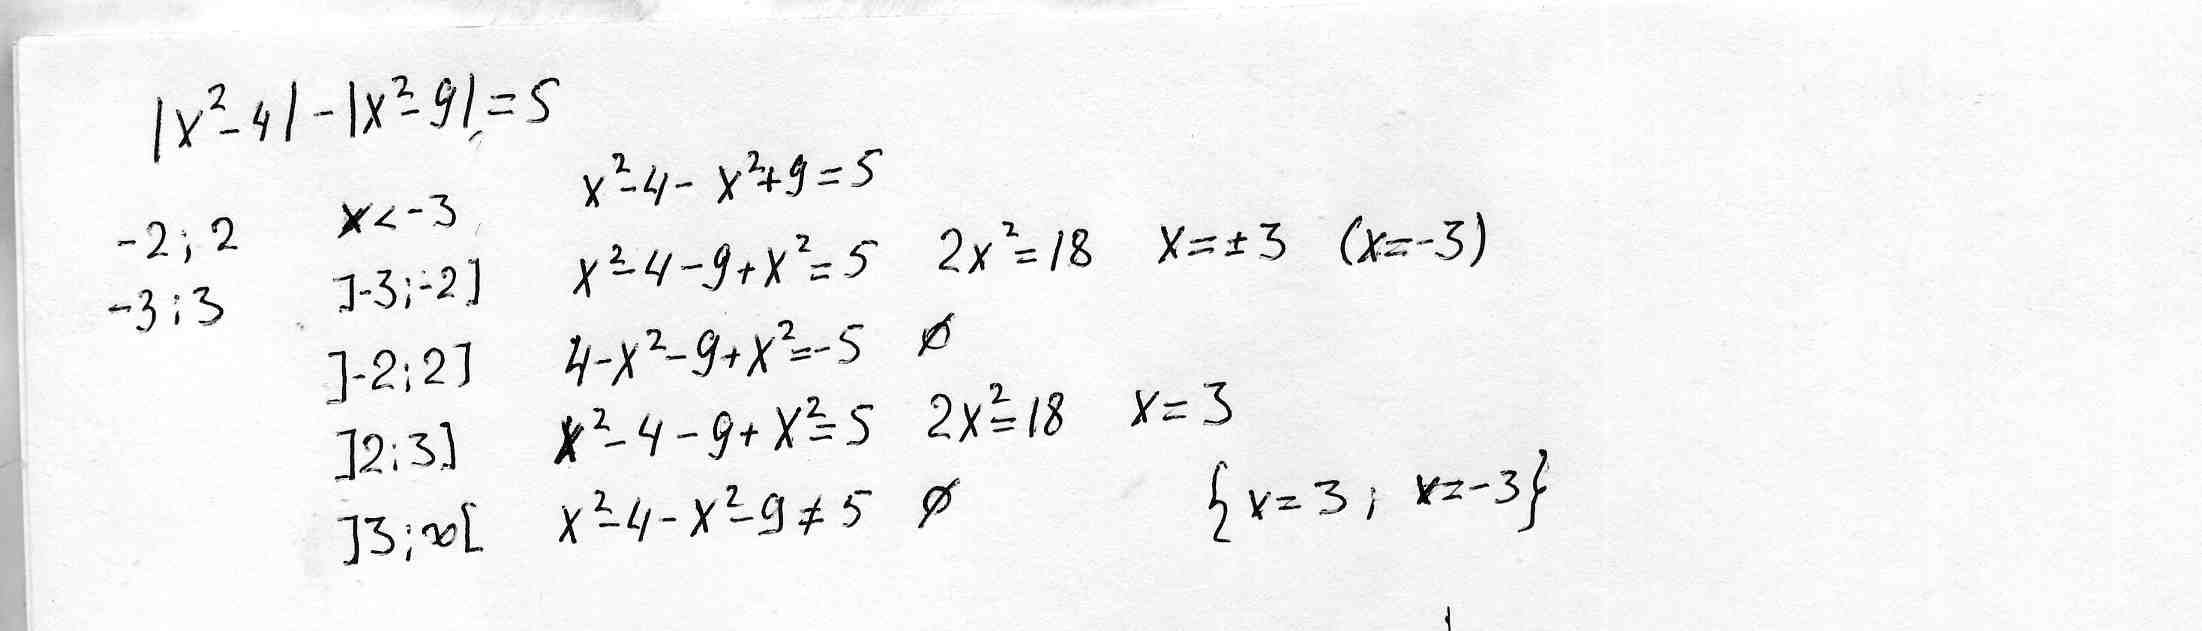 |x²-4|-|x²-9|=5
-2; 2 x<-3 x²-4-x²+9=5
-3; 3 ]-3;-2] x²-4-9+x²=5 2x²=18 x=±3 (x=-3)
]-2;2] 4-x²-9+x²=-5 ∅
]2;3] x²-4-9+x²=5 2x²=18 x=3
]3;∞[ x²-4-x²-9≠5 ∅ {x=3; x=-3}